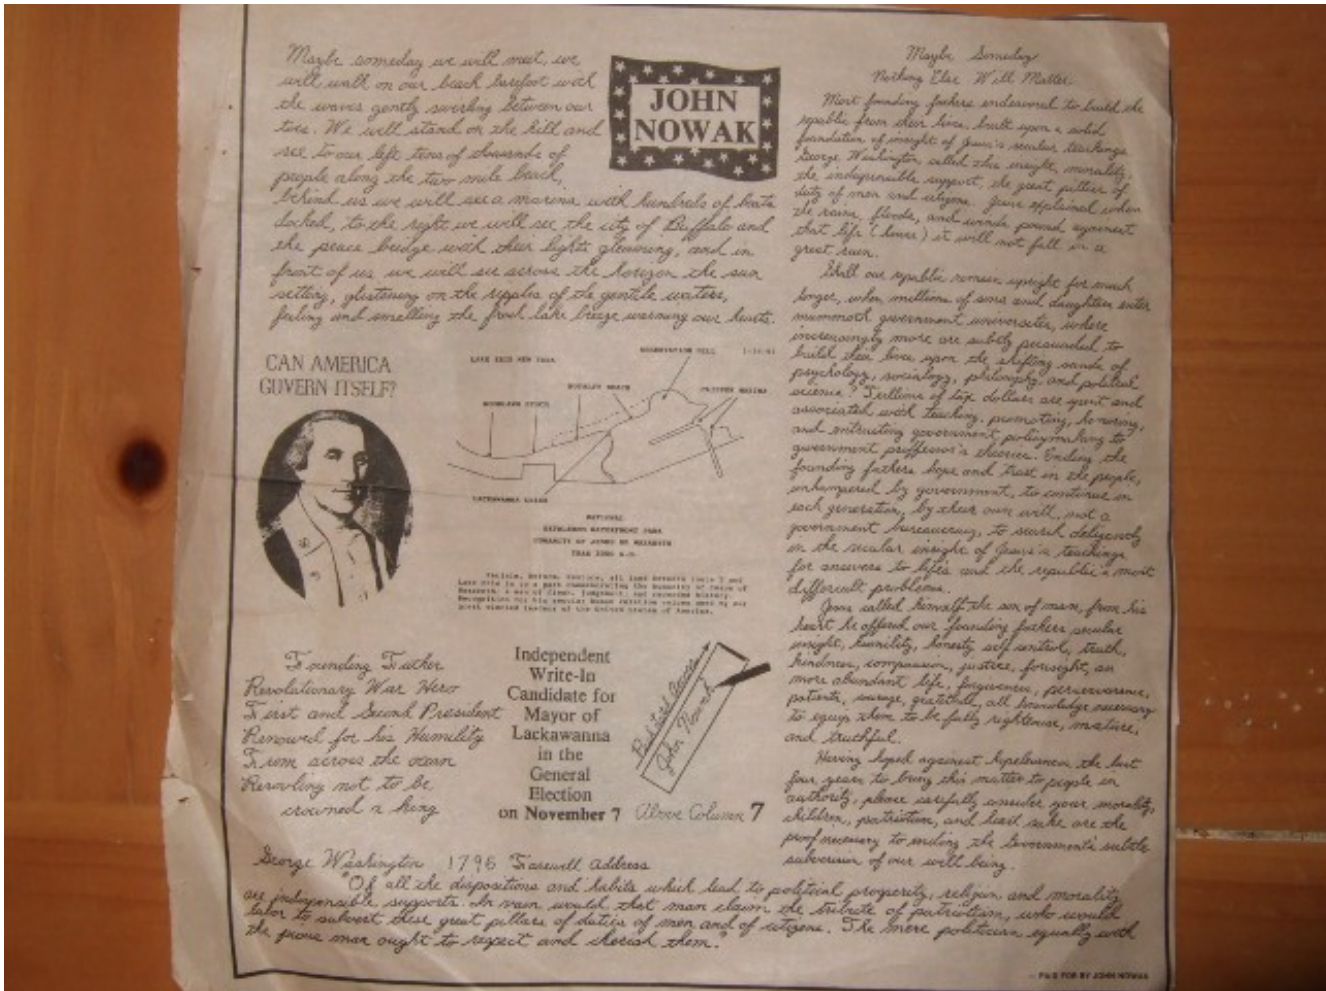 Maybe someday we will meet, we
will walk on our beach barefoot with
the waves gently swirling between our
toes. We will stand on the hill and
see to our left tens of thousands of
people along the two mile beach,
behind us we will see a marina with hundreds of boats
docked, to the right we will see the city of Buffalo and
the peace bridge with their lights gleaming, and in
front of us we will see across the horizon the sun
setting, glistening on the ripples of the gentile waters,
feeling and smelling the fresh lake breeze warming our hearts.
JOHN
NOWAK
CAN AMERICA
GOVERN ITSELF?
LAKE ERIE NEW YORK
OBSERVATION HILL
WOODLAWN BEACH
LACKAWANNA
NATIONAL
BETHLEHEM WATERFRONT PARK
HUMANITY OF JESUS OF NAZARETH
YEAR 2000 A.D.
Founding Father
Revolutionary War Hero
First and Second President
Renowed for his Humility
From across the ocean
Resvoling not to be
crowned a king
Independent
Write-In
Candidate for
Mayor of
Lackawanna
in the
General
Election
on November 7
John Nowak
Above Column 7
Maybe Someday
Nothing Else Will Matter
Most founding fathers endeavored to build the
republic from their lives, built upon a solid
foundation of insight of Jesus's secular teachings.
George Washington called this insight, morality,
the indispensible support, the great pillier of
duty of men and citizens. Jesus explained when
the rains, floods, and winds pound against
that life (house) it will not fall in a
great ruin.
Shall our republic remain upright for much
longer, when millions of sons and daughters enter
mammoth government universities, where
increasingly more are subtly persuaded to
build their lives upon the shifting sands of
psychology, sociology, philosophy and political
science? Trillions of tax dollars are spent and
associated with teaching, promoting, honoring,
and entrusting government policymaking to
government proffessor's theories. Ending the
founding fathers hope and trust in the people,
unhampered by government, to continue in
each generation, by their own will, not a
government bureaucracy, to search diligently
in the secular insight of Jesus's teachings
for answers to life's and the republic's most
difficult problems.
Jesus called himself the son of man, from his
heart he offered our founding fathers secular
insight, humility, honesty, self control, truth,
kindness, compassion, justice, foresight, an
more abundant life, forgiveness, perserverance,
patients, courage, all knowledge necessary
to equip them to be fully righteous, mature,
and truthful.
Having hoped against hopelessness the last
four years to bring this matter to people in
authority, please carefully consider your morality,
children, patriotism, and sake are the
proof necessary to ending the Government's subtle
subversion of our well being.
George Washington 1796 Farewell Address
"Of all the dispositions and habits which lead to political prosperity, religion and morality
are indispensible supports. In vain would that man claim the tribute of patriotism, who would
labor to subvert these great pillars of duties of men and of citizens. The mere politician equally with
the pious man ought to respect and cherish them."
PAID FOR BY JOHN NOWAK